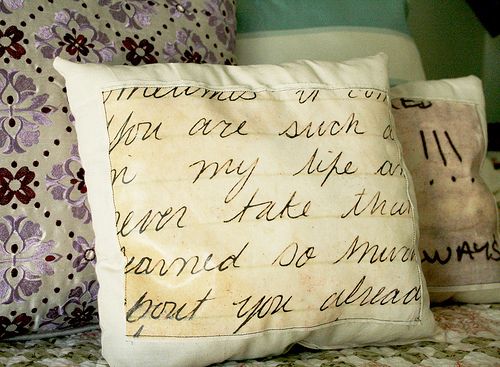 you are such a
in my life an
never take that
learned so much
about you alread
ED
!!!
WAYS